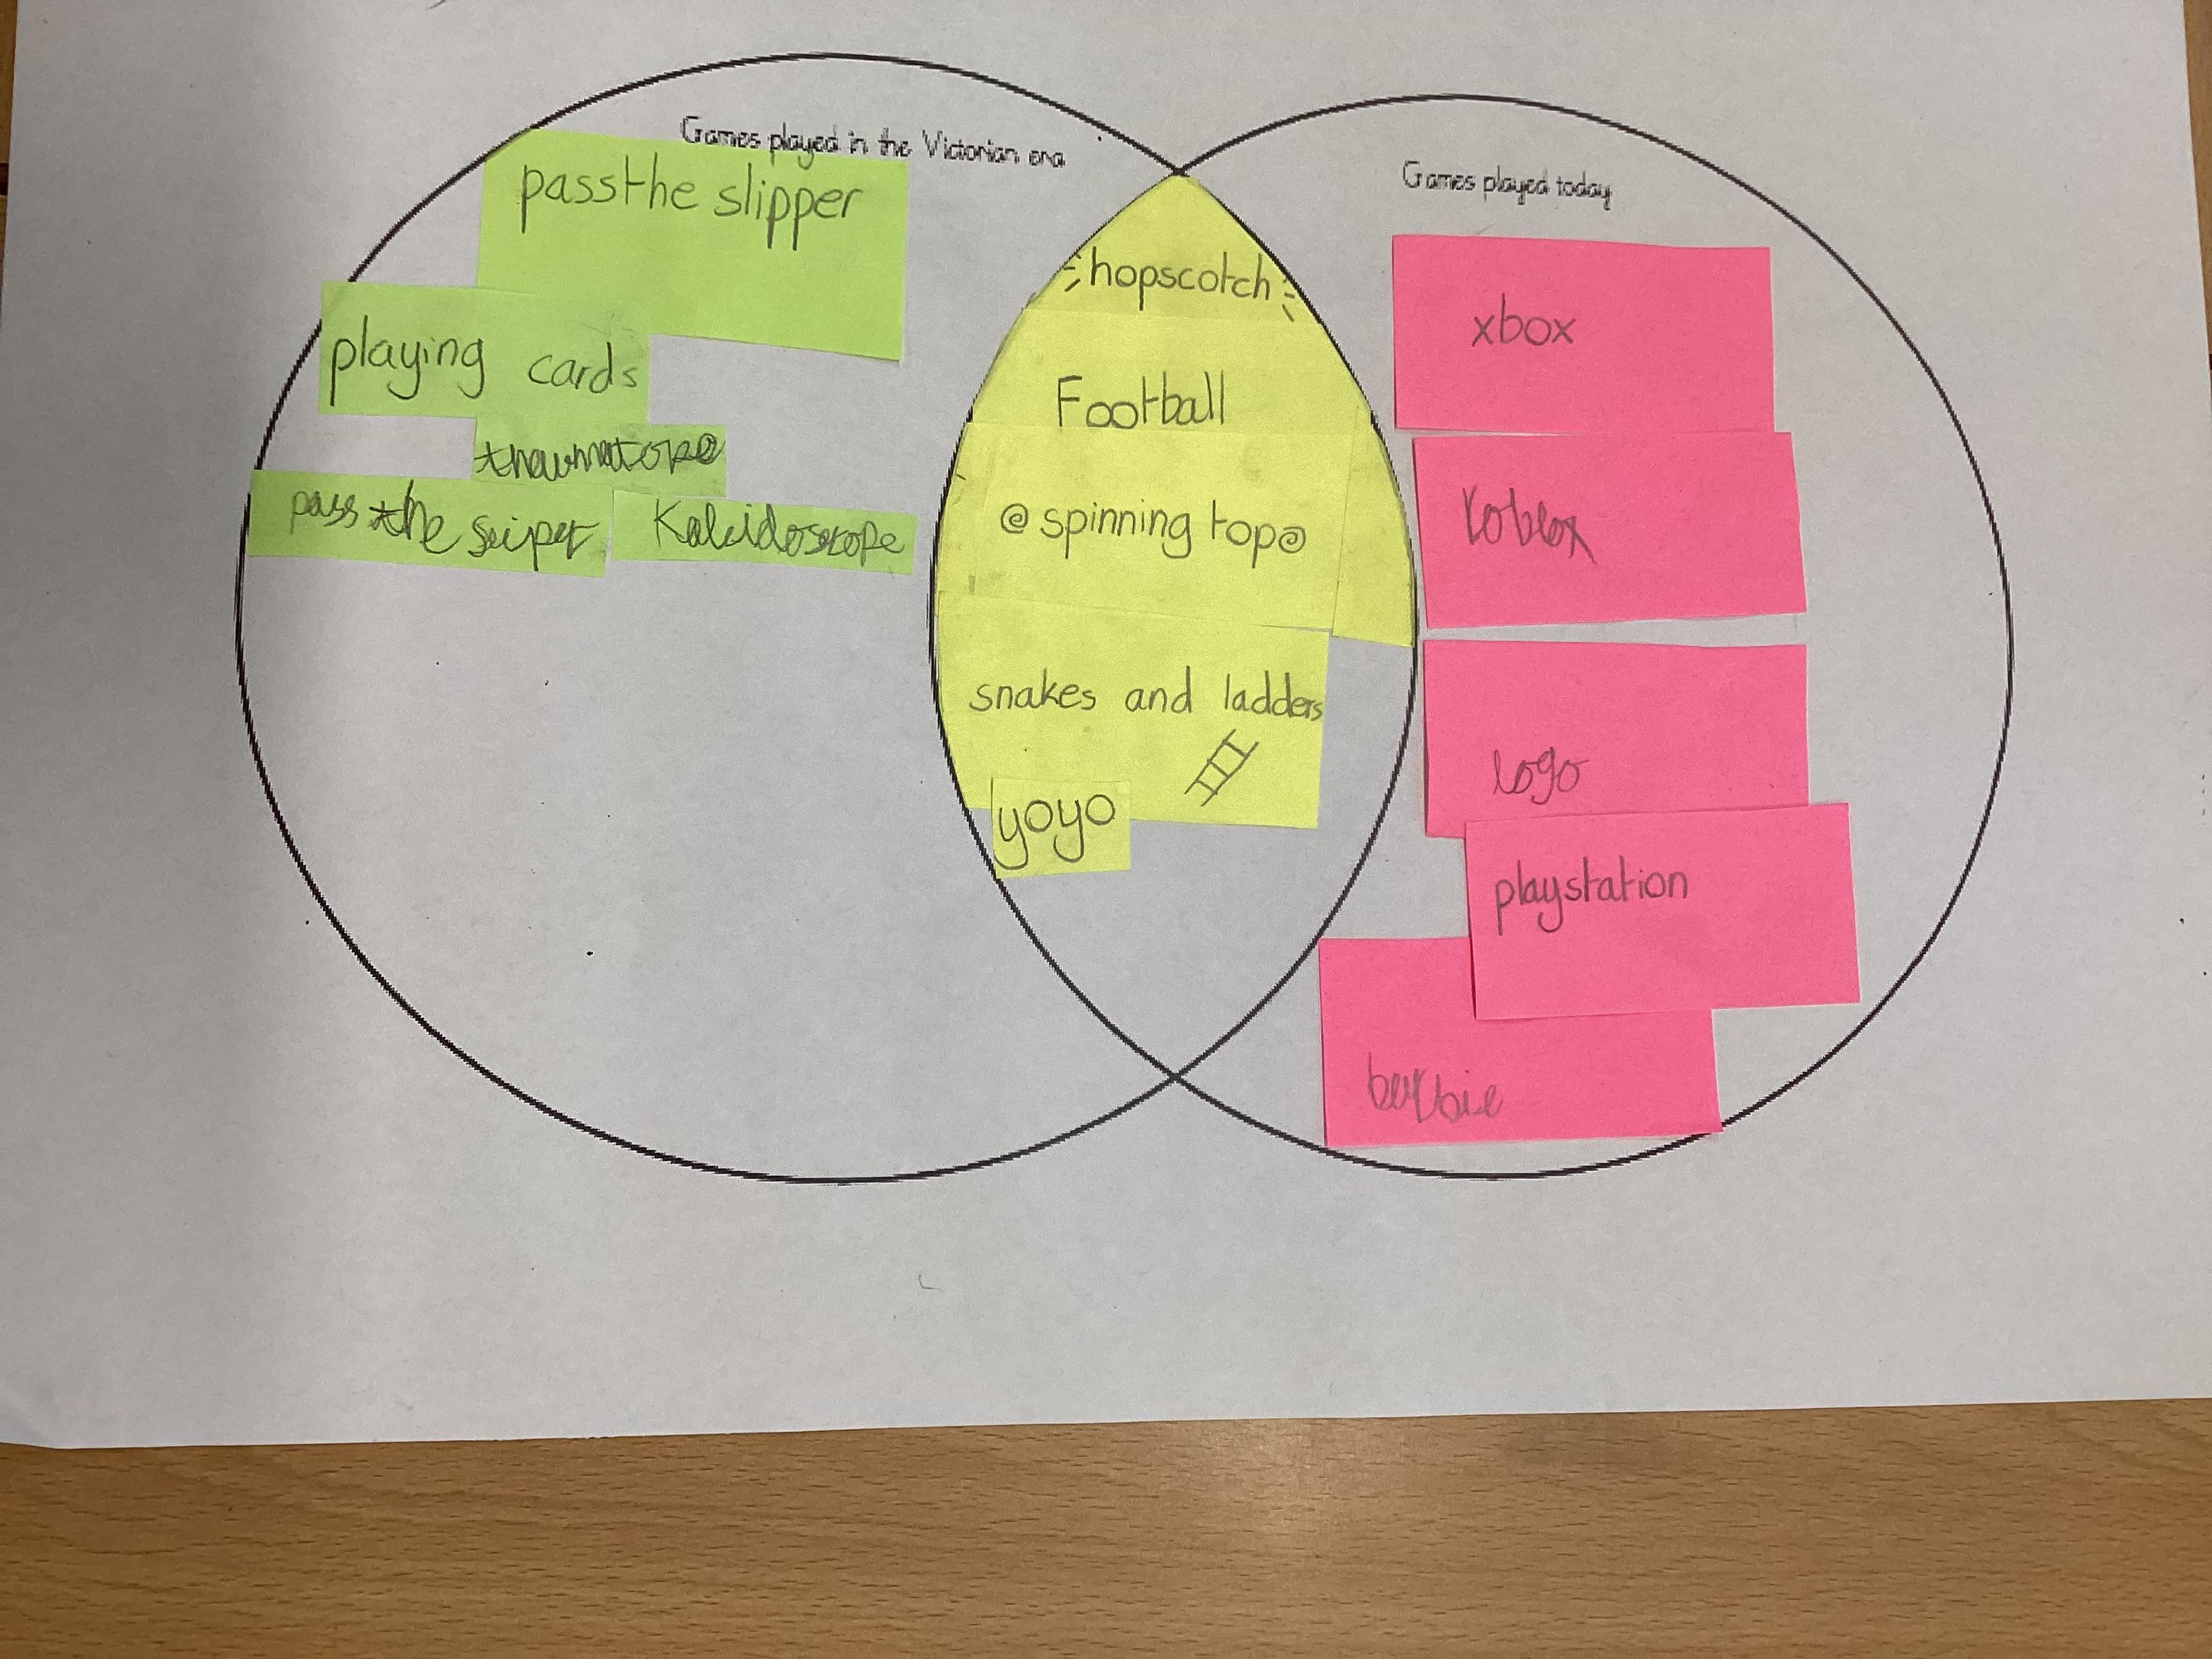 Games played in the Victorian era
pass the slipper
playing cards
thaumatope
pass the sliper
Kaleidoscope
hopscotch
Football
spinning top
snakes and ladders
yoyo
Games played today
xbox
roblox
logo
playstation
barbie